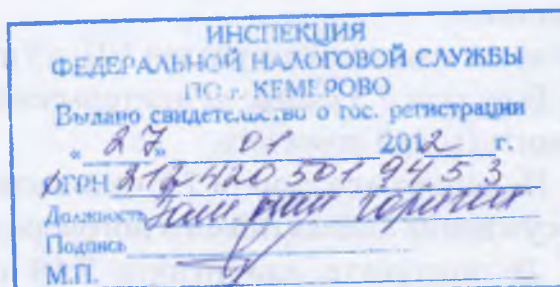 ИНСПЕКЦИЯ
ФЕДЕРАЛЬНОЙ НАЛОГОВОЙ СЛУЖБЫ
ПО г. КЕМЕРОВО
Выдано свидетельство о гос. регистрации
«27» 01 2012 г.
ОГРН 2124205019453
Должность
Подпись
М.П.